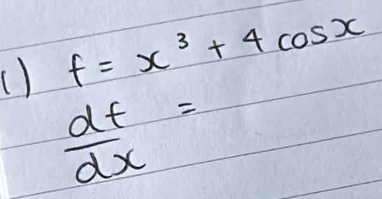 1) f = x³ + 4 cos x
df/dx =